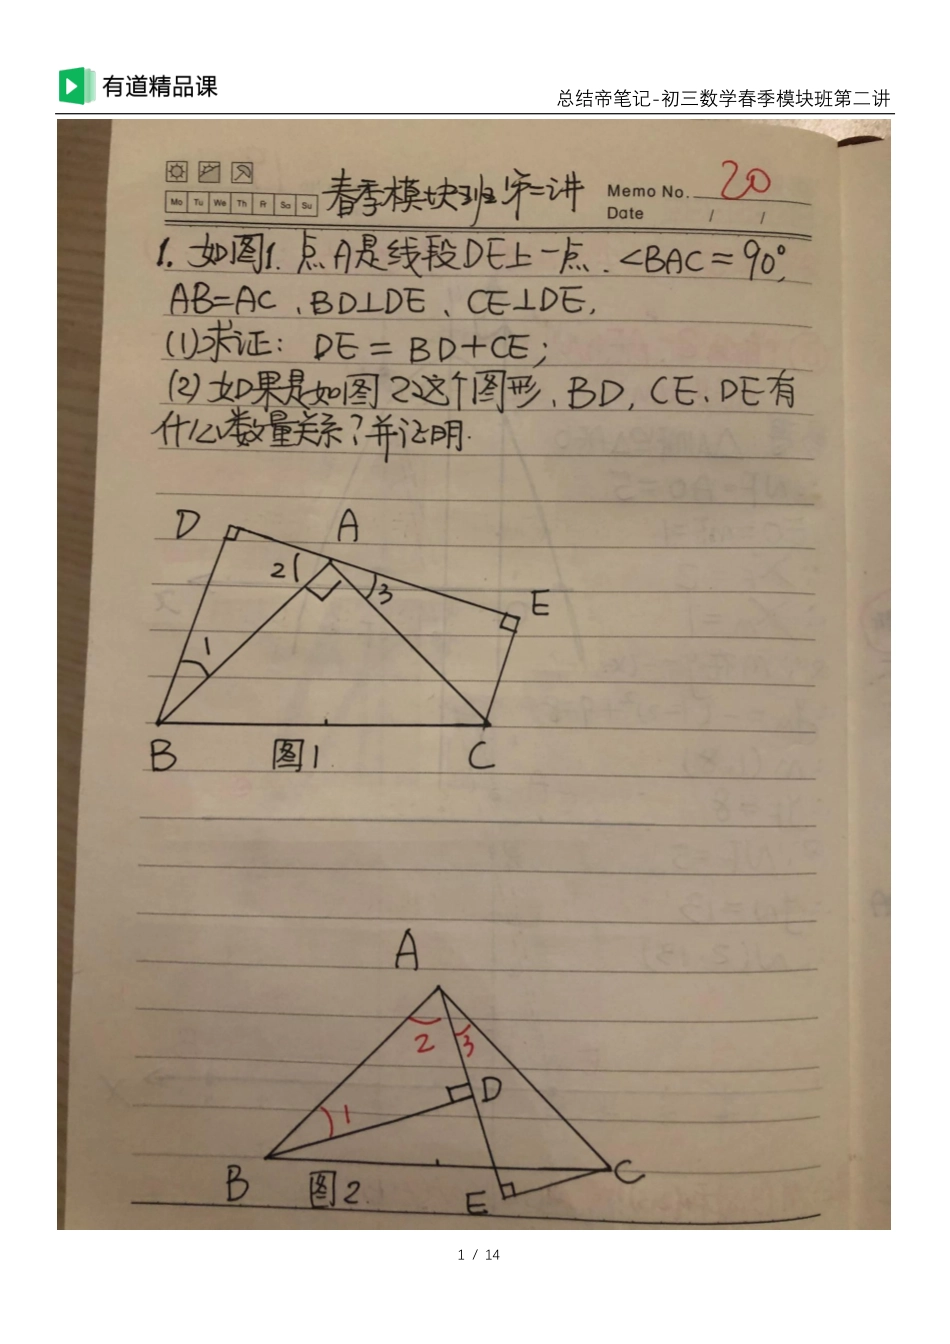 有道精品课
总结帝笔记-初三数学春季模块班第二讲
春季模块班第二讲
Memo No. 20
Date / /
Mo Tu We Th Fr Sa Su
1. 如图1. 点A是线段DE上一点. ∠BAC=90°,
AB=AC、BD⊥DE、CE⊥DE,
(1)求证: DE=BD+CE;
(2)如果是如图2这个图形、BD, CE、DE有
什么数量关系?并证明.
D A
2 3
E
1
B 图1 C
A
2 3
D
1
B 图2 E C
1 / 14